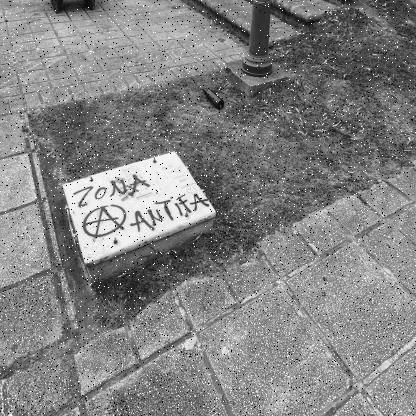 ZONA
Ⓐ ANTIFA